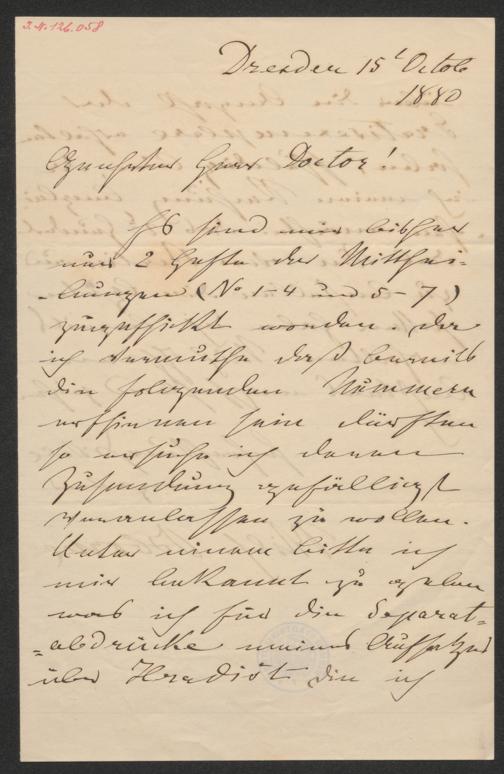 I.N. 126.058
Dresden 15t Octob
1880
Geehrter Herr Doctor!
Es sind mir bisher
nur 2 Hefte der Mitthei-
-lungen (No 1-4 und 5-7)
zugeschickt worden. Da
ich vermuthe daß bereits
die folgenden Nummern
erschienen sein dürften
so ersuche ich deren
Zusendung gefälligst
veranlassen zu wollen.
Unter einem bitte ich
mir bekannt zu geben
was ich für die Separat=
=abdrücke meines Aufsatzes
über Hradišt die ich